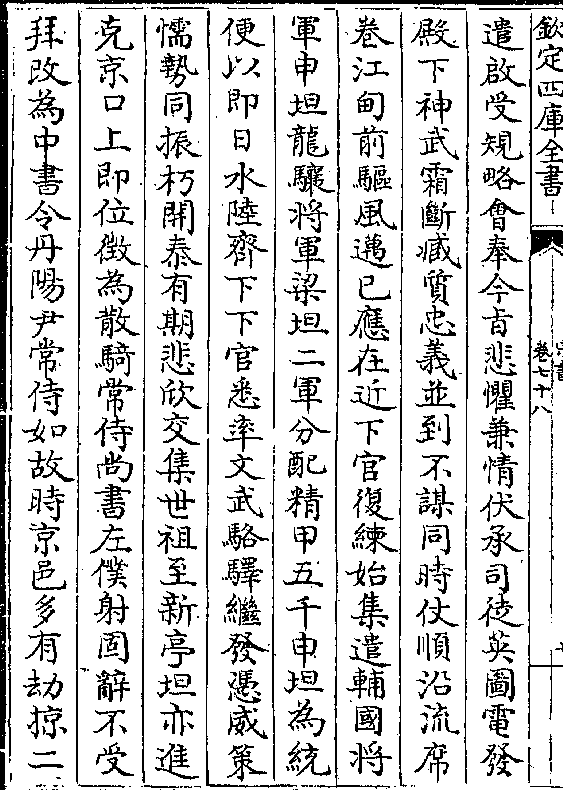 欽定四庫全書
宋書
卷七十八
遣啟受規略會奉今旨悲懼兼情伏承司徒英圖電發
殿下神武霜斷臧質忠義並到不謀同時仗順沿流席
卷江甸前驅風邁已應在近下官復練始集遣輔國將
軍申坦龍驤將軍梁坦二軍分配精甲五千申坦為統
便以即日水陸齊下下官悉率文武駱驛繼發憑威策
懦勢同振朽開泰有期悲欣交集世祖至新亭坦亦進
克京口上即位徵為散騎常侍尚書左僕射固辭不受
拜改為中書令丹陽尹常侍如故時京邑多有劫掠二